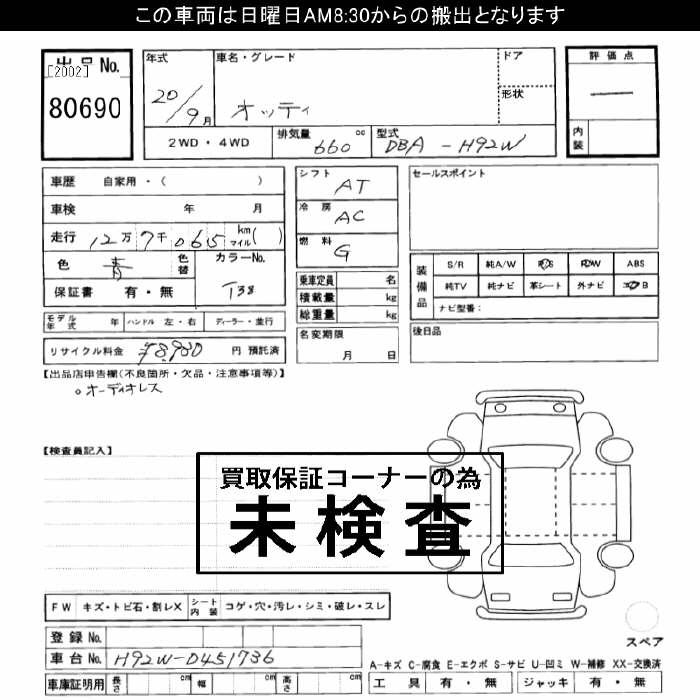 この車両は日曜日AM8:30からの搬出となります
出品 No.
[2002]
80690
年式
20/9月
車名・グレード
オッティ
ドア
形状
評価点
—
内装
2WD・4WD
排気量 660 cc
型式 DBA-H92W
車歴 自家用・( )
車検 年 月
走行 12万7千065 km マイル( )
色 青 色替
カラーNo. T38
保証書 有・無
モデル年式 年 ハンドル 左・右 ディーラー・並行
リサイクル料金 ¥8,980 円 預託済
シフト AT
冷房 AC
燃料 G
乗車定員 名
積載量 kg
総重量 kg
名変期限
月 日
セールスポイント
装備品
S/R 純A/W P/S P/W ABS
純TV 純ナビ 革シート 外ナビ エアB
ナビ型番:
後日品
【出品店申告欄(不良箇所・欠品・注意事項等)】
。オーディオレス
【検査員記入】
買取保証コーナーの為
未検査
FW キズ・トビ石・割レX シート内装 コゲ・穴・汚レ・シミ・破レ・スレ
登録 No.
車台 No. H92W-D451736
車庫証明用 長さ cm 幅 cm 高さ cm
スペア
A-キズ C-腐食 E-エクボ S-サビ U-凹ミ W-補修 XX-交換済
工具 有・無 ジャッキ 有・無